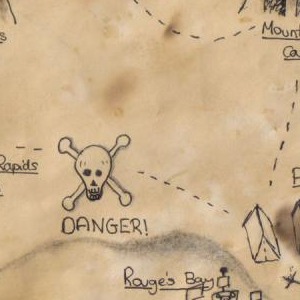 Mount
Ca
Rapids
DANGER!
Rouge's Bay